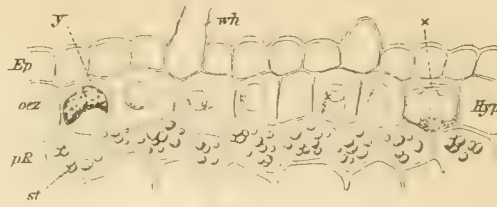 y wh x
Ep
oez Hyp
pR
st